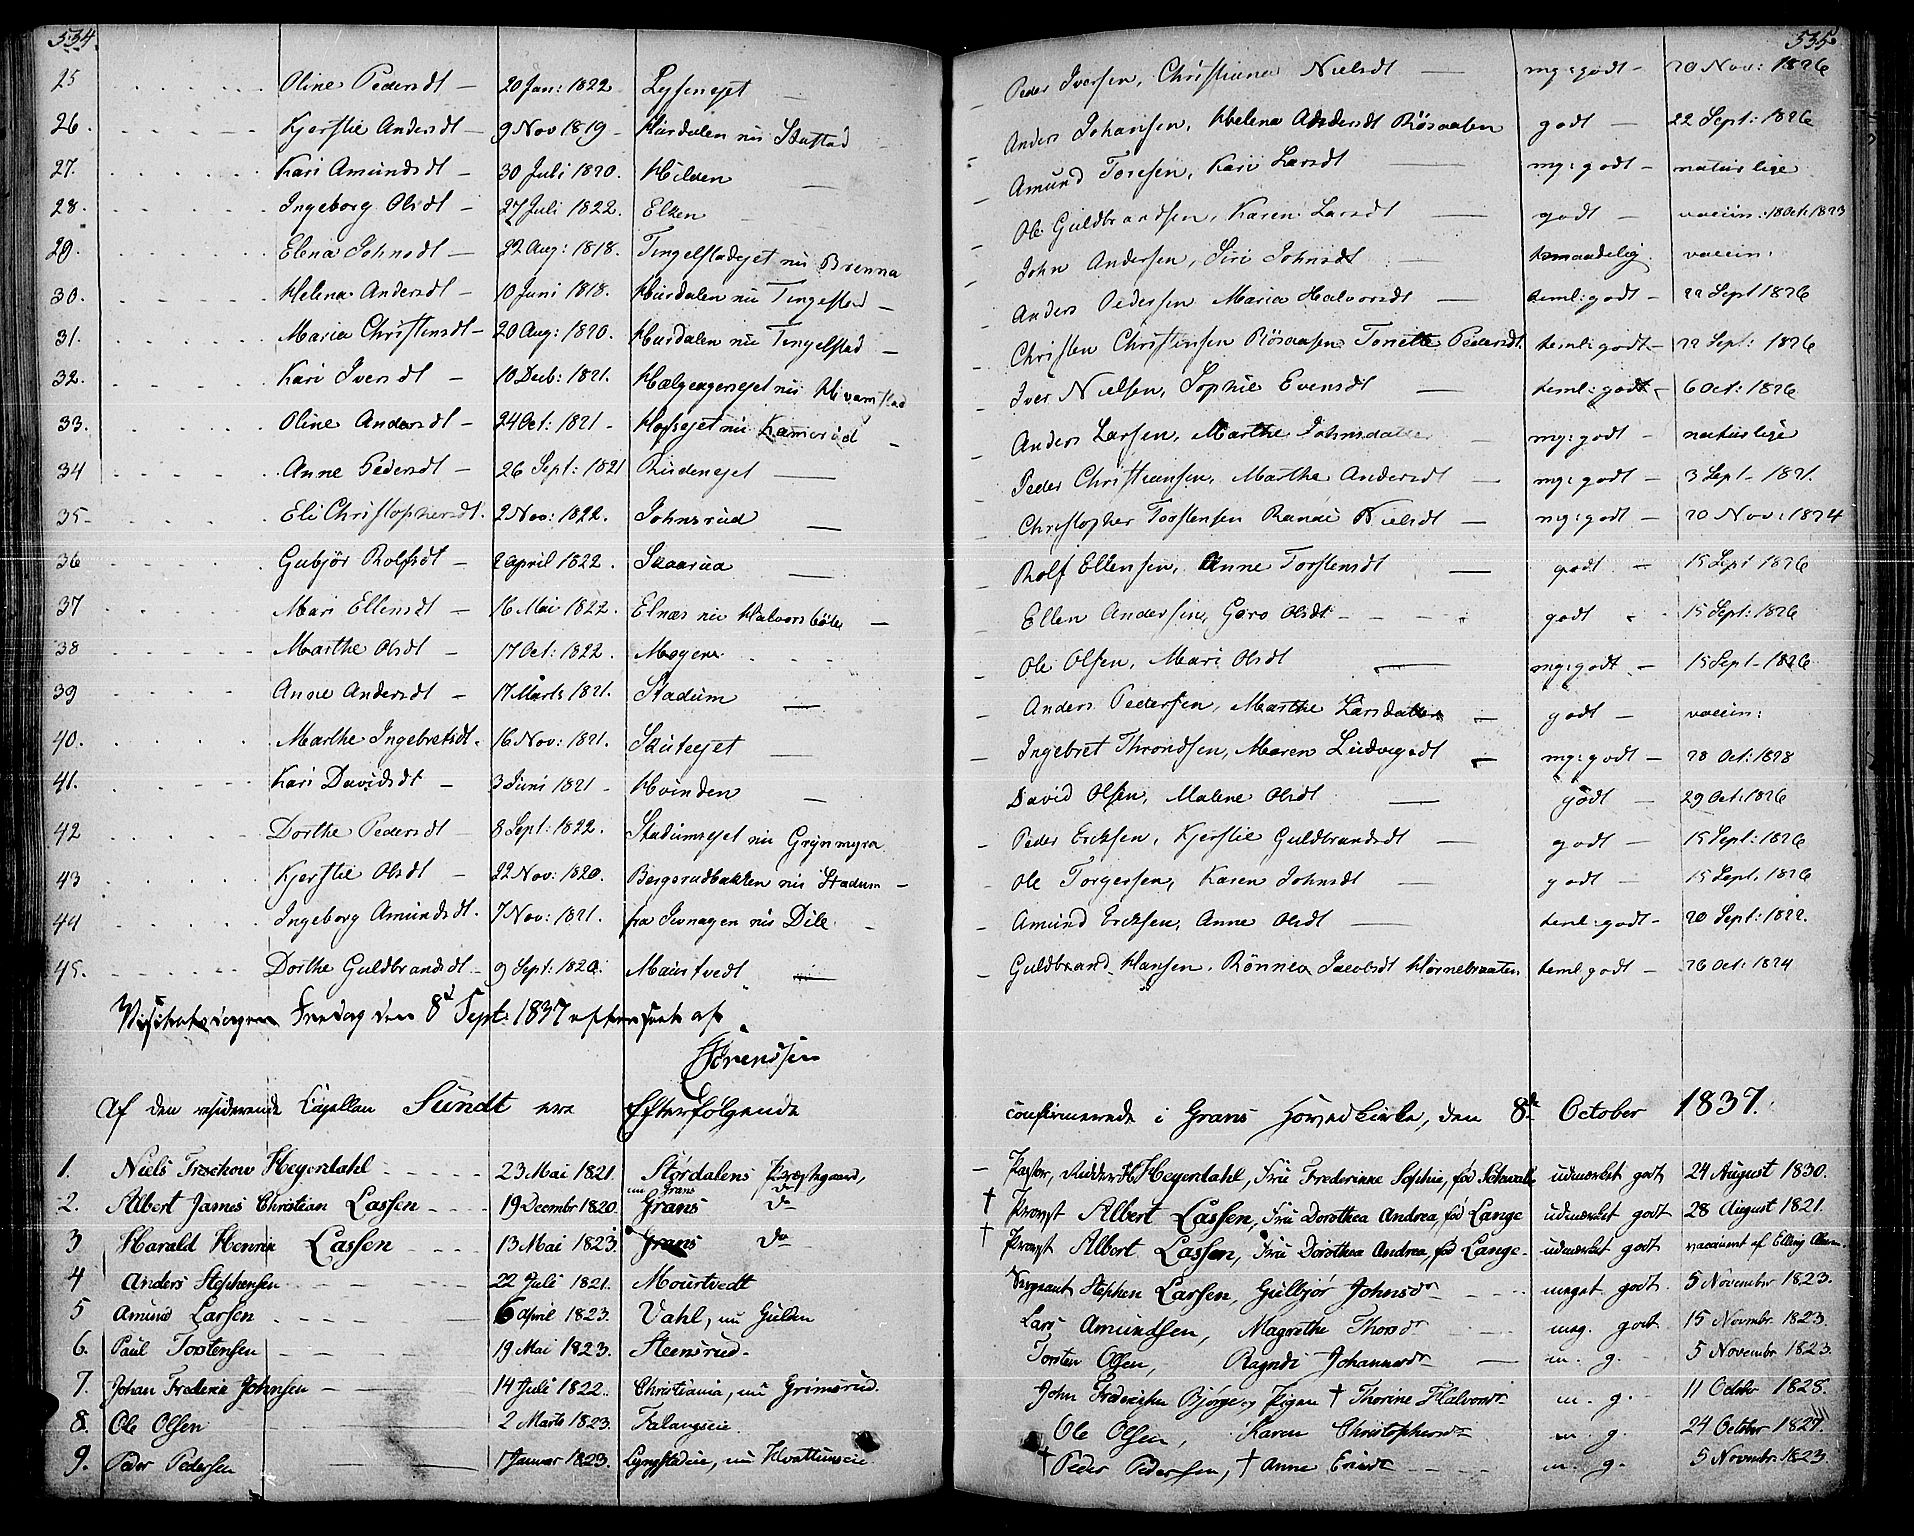 534.
25 Oline Pedersdt — 20 Jan: 1822 Lysenejet —
26. Kjerstie Andersdt — 9 Nov 1819 — Hurdalen nu Skastad
27. Kari Amundsdt — 30 Juli 1820. Hilden —
28. Ingeborg Olsdt — 27 Juli 1822. Elken
29. Elena Johnsdt — 22 Aug: 1818. Tingelstadejet nu Brenna
30. Helena Andersdt — 10 Juni 1818. Hurdalen nu Tingelstad —
31. Maria Christensdt — 20 Aug: 1820. Hurdalen nu Tingelstad —
32. Kari Iversdt — 10 Decb: 1821. Hælgeagerejet nu Hvamstad
33. Oline Andersdt — 24 Oct: 1821 — Hofsejet nu Kamerud —
34 Anne Pedersdt — 26 Sept: 1821 Rudenejet —
35 Eli Christophersdt. 2 Nov: 1822. Johnsrud —
36 Gubjør Rolfsdt — 2 april 1822. Skaarud —
37 Mari Ellensdt — 16 Mai 1822. Elnæs nu Halvorsbøle —
38 Marthe Olsdt — 17 Oct: 1822. Mogen
39 Anne Andersdt — 17 Marts 1821. Stadum —
40. Marthe Ingebretsdt. 16 Nov: 1821. Skuteejet —
41. Kari Davidsdt — 3 Juni 1821 — Hvinden —
42 Dorthe Pedersdt — 8 Sept: 1822. Stadumsejet nu Grynmyra
43 Kjerstie Olsdt — 22 Nov: 1820. Bergsrudbakken nu Stadum —
44 Ingeborg Amundsdt. 7 Nov: 1821. fra Jevnagen nu Dile —
45. Dorthe Guldbrandsdt — 9 Sept: 1820. Maurtvedt —
Visitatsdagen Fredag den 8d Sept: 1837 efterseet af
Sørenssen
Af den residerende Capellan Sundt ere Efterfølgende
1. Niels Treschow Heyerdahl 23 Mai 1821. Størdalens Præstegaard,
nu Grans do
2. Albert James Christian Lassen 19 Decembr 1820. Grans do
3 Harald Henrik Lassen 13 Mai 1823. Grans do
4 Anders Stephensen 22 Juli 1821. Mourtvedt
5 Amund Larsen 6 April 1823. Vahl, nu Gulden
6. Paul Torstensen 19 Mai 1823. Steensrud.
7. Johan Frederik Johnsen 14 Juli 1822. Christiania, nu Grimsrud.
8. Ole Olsen 2 Marts 1823. Falangseie.
9. Peder Pedersen 1 Januar 1823. Lyngstadeie, nu Hvattumseie
535.
Peder Iversen, Christiane Nielsdt — mg: godt — 20 Nov: 1826
Anders Johansen, Helena Andersdt Røsaalen godt — 22 Sept: 1826
Amund Toresen, Kari Larsdt — mg: godt — naturlige
Ole Guldbrandsen, Karen Larsdt — godt — vaccin: 18 Oct: 1823
John Andersen, Siri Johnsdt — temaadelig vaccin:
Anders Pedersen Maria Halvorsdt — teml: godt — 22 Sept 1826
Christen Christensen Røsaasen Tonette Pedersdt. teml: godt — 22 Sept: 1826
Iver Nielsen, Sophie Evensdt — teml: godt — 6 Oct: 1826
Anders Larsen, Marthe Johnsdatter mg: godt — naturlige
Peder Christiansen, Marthe Andersdt — mg: godt — 3 Sept — 1821.
Christopher Torstensen Randi Nielsdt — mg: godt — 20 Nov: 1824
Rolf Ellensen, Anne Torstensdt — godt — 15 Sept 1826
Ellen Andersen, Goro Olsdt — godt 15 Sept: 1826
Ole Olsen, Mari Olsdt — mg: godt — 15 Sept — 1826
Anders Pedersen, Marthe Larsdatter — godt — vaccin:
Ingebret Throndsen, Maren Ludvigsdt — mg: godt — 28 Oct: 1828
David Olsen, Malene Olsdt — godt — 29 Oct: 1826
Peder Ericksen, Kjerstie Guldbrandsdt — godt — 15 Sept: 1826
Ole Torgersen, Karen Johnsdt — godt — 15 Sept. 1826
Amund Ericksen, Anne Olsdt — teml: godt — 20 Sept: 1822.
Guldbrand Hansen, Rønnea Jacobsdt Hornebraaten teml: godt — 26 Oct: 1824
confirmerede i Grans Hovedkirke, den 8de October 1837.
Pastor, Ridder H Heyerdahl, Frue Frederikke Sophie, fød Schwalb udmærket godt 24 August 1830.
† Provst Albert Lassen, Frue Dorothea Andrea, fød Lange udmærket godt 28 August 1821.
† Provst Albert Lassen, Frue Dorothea Andrea, fød Lange. udmærket godt vaccineret af Elling
Sergeant Stephen Larsen, Gulbjør Johnsdr meget godt. 5 Novembr 1823.
Lars Amundsen, Magrethe Thorsdr meg. godt 15 Novembr 1823.
Torsten Olsen, Ragndi Johannesdr — m. g. 5 Novembr 1823.
John Fredriksen Bjørge, Pigen † Thorine Halvorsdr m. g. 11 Octobr 1825.
Ole Olsen, Karen Christophersdr m. g. 24 October 1827.
† Peder Pedersen, † Anne Eriksdr m. g. 5 Novembr 1823.